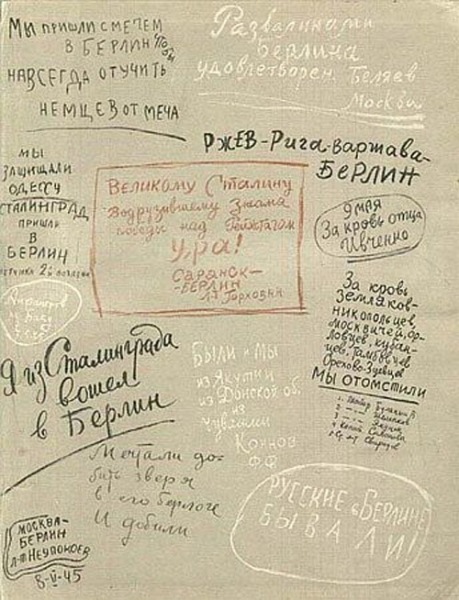 МЫ ПРИШЛИ С МЕЧЕМ
В БЕРЛИН
НАВСЕГДА ОТУЧИТЬ
НЕМЦЕВ ОТ МЕЧА
Развалинами
Берлина
удовлетворен. Беляев
Москва
РЖЕВ-Рига-варжава-
БЕРЛИН
МЫ
ЗАЩИЩАЛИ
ОДЕССУ
СТАЛИНГРАД
ПРИШЛИ
В
БЕРЛИН
ВЕЛИКОМУ СТАЛИНУ
водрузившему знамя
победы над Рейхстагом
Ура!
САРАНСК-
-БЕРЛИН
9 МАЯ
За кровь отца
Ивченко
За кровь
земляков-
никопольцев,
москвичей, ор-
ловцев, курян-
цев, тамбовцев
Орехово-Зуевцев
МЫ ОТОМСТИЛИ
Я из Сталинграда
вошел
в Берлин
БЫЛИ И МЫ
из Якутии
из Донской об.
из
Чувашии
Мечтали до-
бить зверя
в его берлоге
И добили
РУССКИЕ в БЕРЛИНЕ
БЫВАЛИ!
МОСКВА-
БЕРЛИН
Л-Т НЕУПОКОЕВ
8-V-45